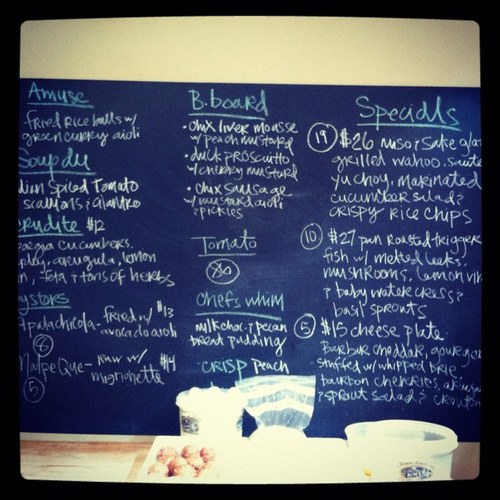 Amuse
fried rice balls w/
green curry aioli
Soup du
Spiced Tomato
scallions & cilantro
rudite $12
cucumbers,
arugula, lemon
feta & tons of herbs
ysters
palachicola- fried w/ $13
avocado aioli
8
Malpeque- raw w/ $14
mignonette
5
B.board
• chix liver mousse
w/ peach mustard
• duck prosciutto
w/ cherry mustard
• chix sausage
w/ mustard aioli
& pickles
Tomato
86
Chefs whim
milk choc. & pecan
bread pudding
- crisp peach
Specials
19 $26 miso & sake
grilled wahoo, saute
yu choy, marinated
cucumber salad &
crispy rice chips
10 $27 pan roasted trigger
fish w/ melted leeks,
mushrooms, lemon vin
& baby watercress &
basil sprouts
5 $15 cheese plate
cheddar,
stuffed w/ whipped brie
bourbon cherries,
& sprout salad &